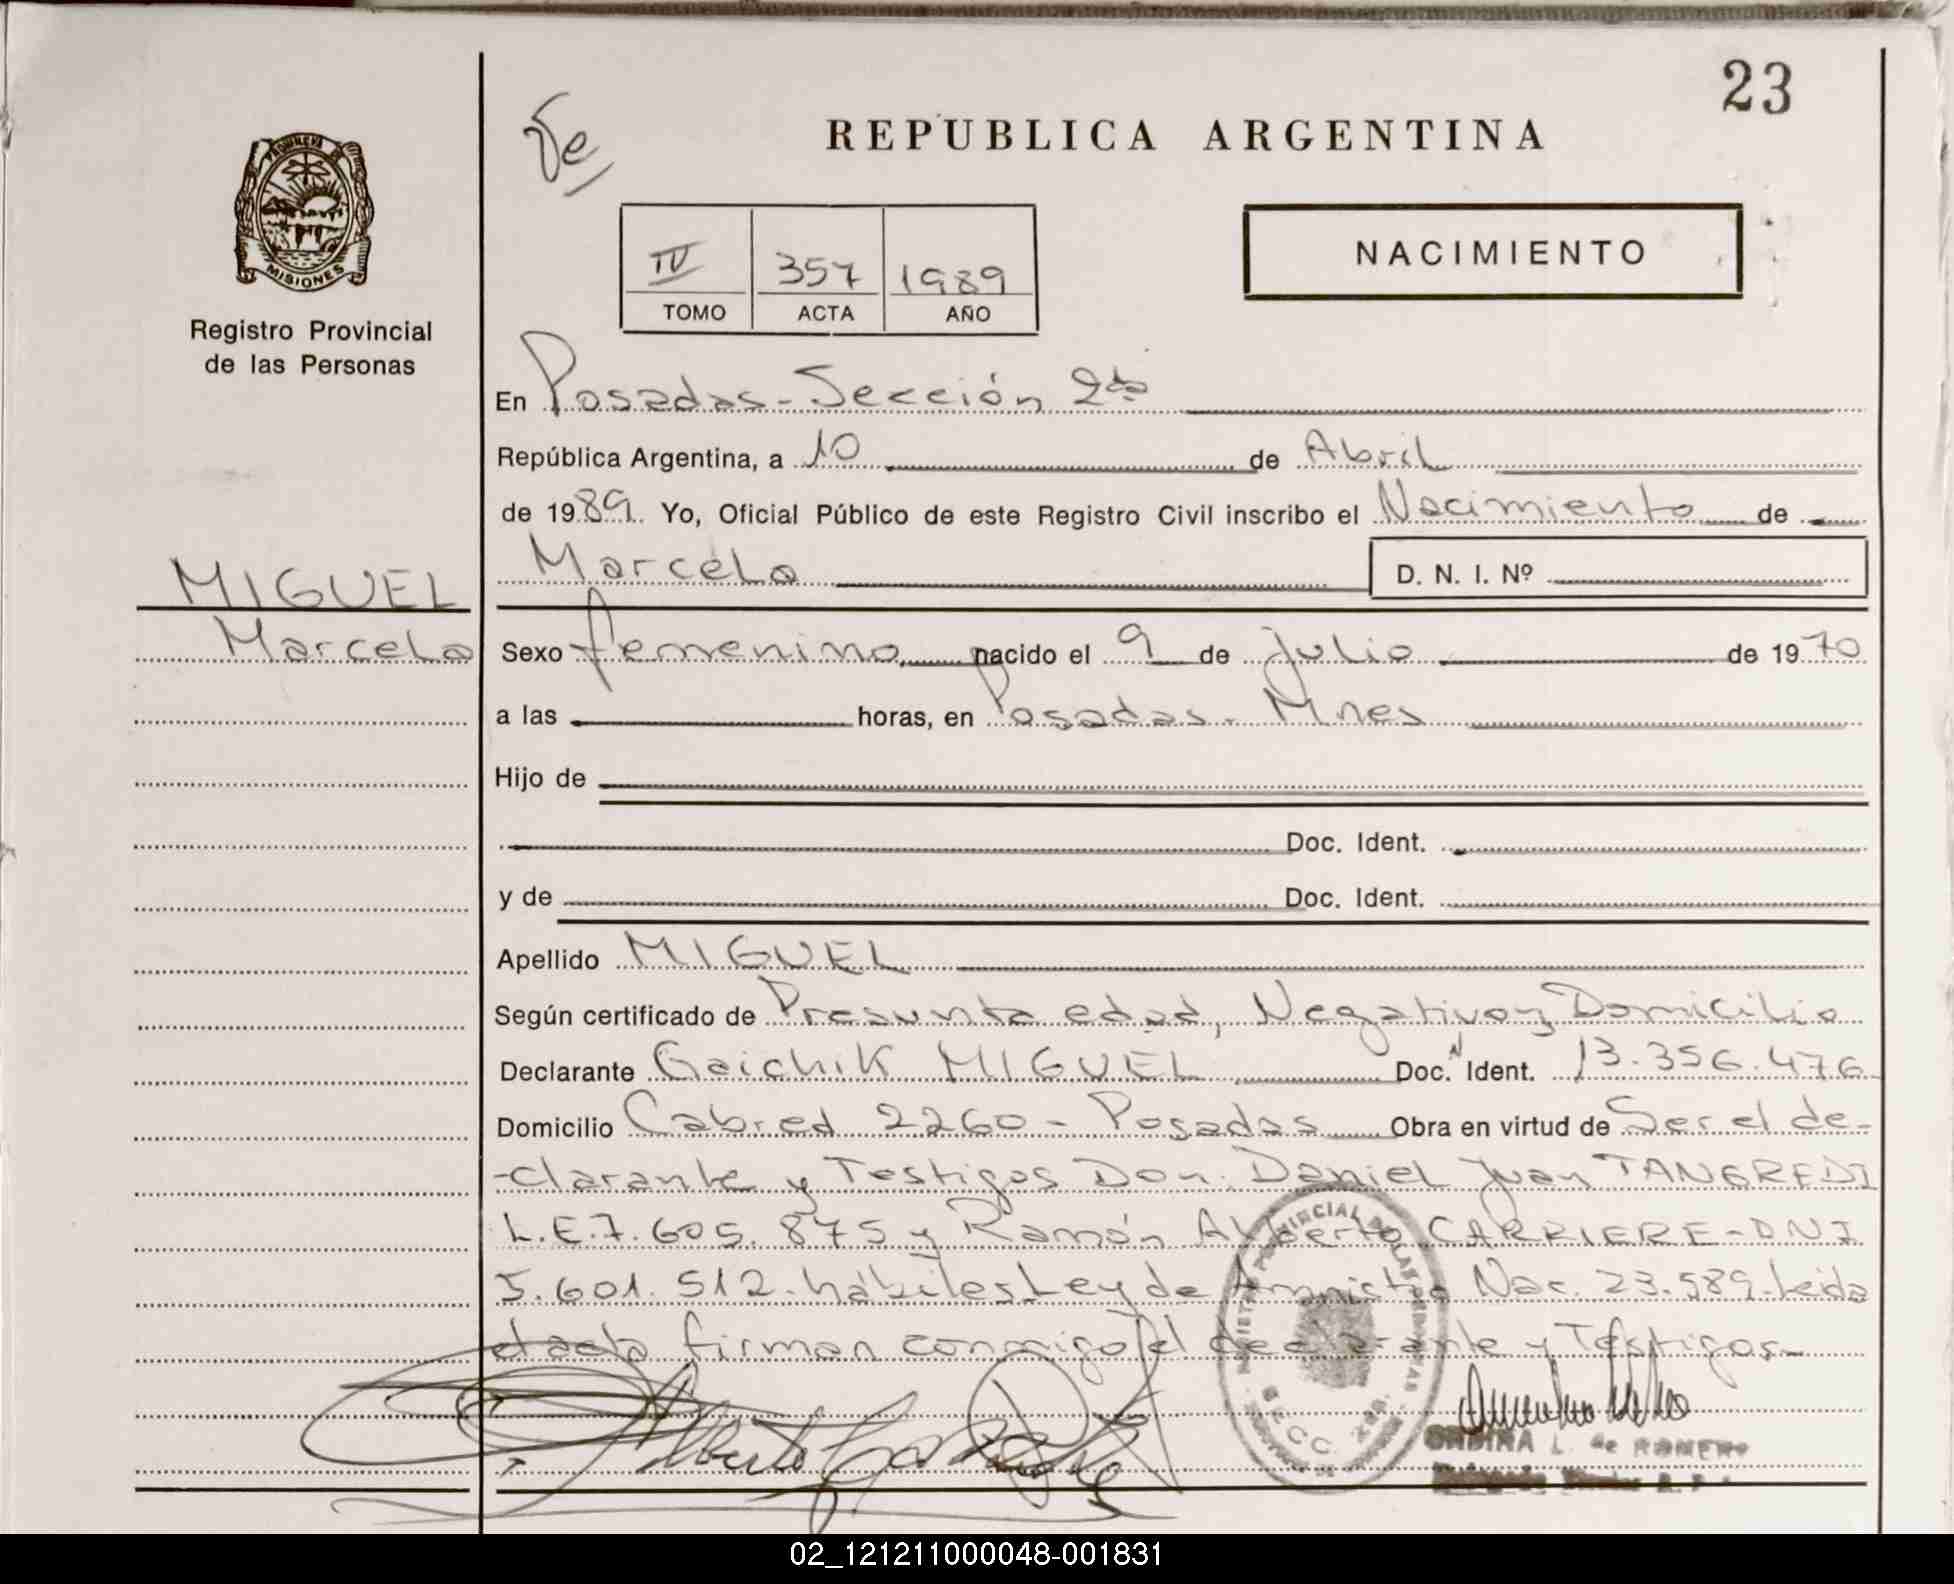 23
REPUBLICA ARGENTINA
PROVINCIA DE
MISIONES
Registro Provincial
de las Personas
NACIMIENTO
IV 357 1989
TOMO ACTA AÑO
En Posadas-Sección 2da
República Argentina, a 10 de Abril
de 1989. Yo, Oficial Público de este Registro Civil inscribo el Nacimiento de
Marcela D. N. I. Nº
MIGUEL
Marcela
Sexo femenino nacido el 9 de julio de 1970
a las horas, en Posadas. Mnes
Hijo de
Doc. Ident.
y de Doc. Ident.
Apellido MIGUEL
Según certificado de Presunta edad, Negativo y Domicilio
Declarante Gaichik MIGUEL Doc. Ident. 13.356.476
Domicilio Cabred 2260 - Posadas Obra en virtud de Ser el de-
-clarante y Testigos Don. Daniel Juan TANGREDI
L.E.7.605.875 y Ramón Alberto CARRIERE-DNI
5.601.512.hábiles Ley de Amnistia Nac. 23.589.Leida
el acta firman conmigo el declarante y Testigos-
SECC. 2da.
L. de ROMERO
02_121211000048-001831